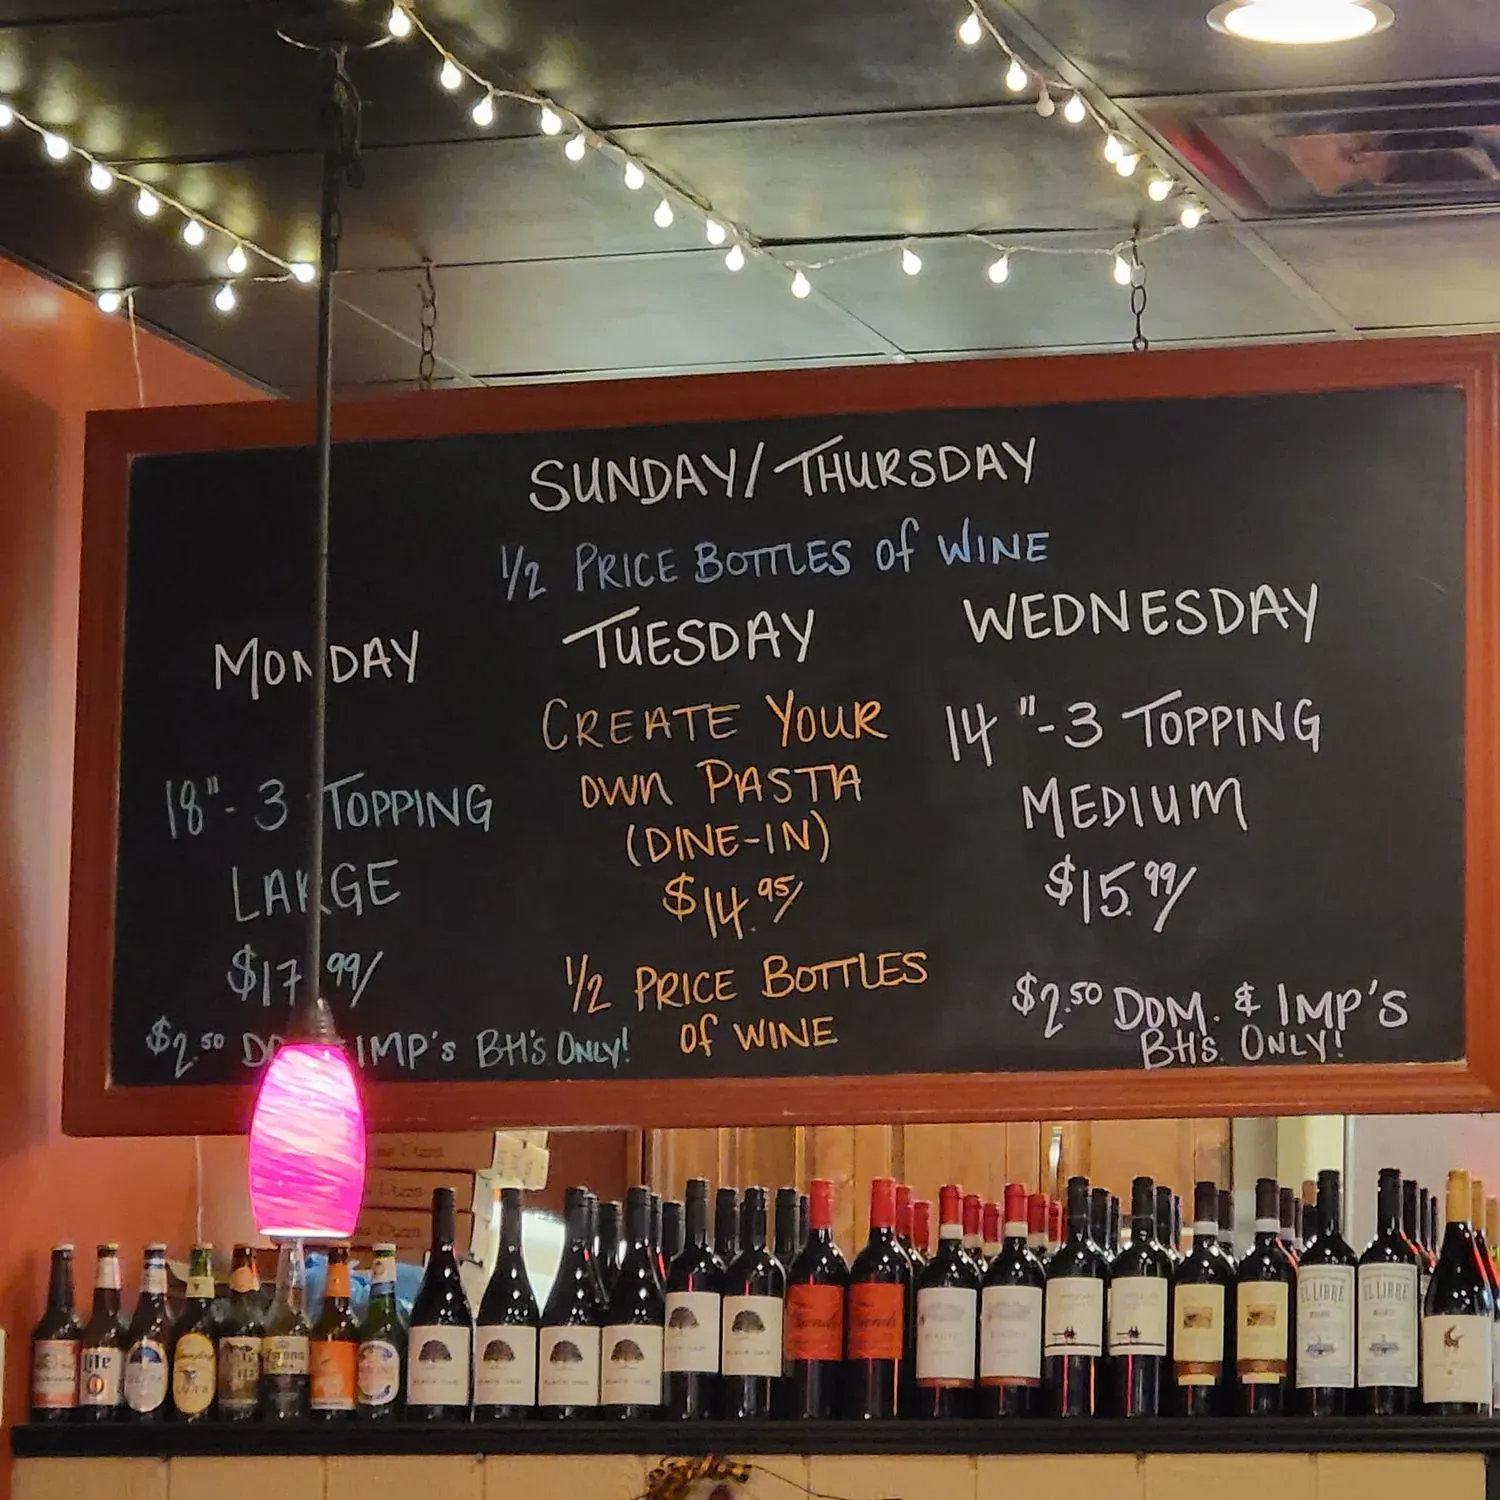 SUNDAY/THURSDAY
1/2 PRICE BOTTLES of WINE
MONDAY
18"-3 TOPPING
LARGE
$17.99/
$2.50 DOM. & IMP's BH's ONLY!
TUESDAY
CREATE YOUR
OWN PASTA
(DINE-IN)
$14.95/
1/2 PRICE BOTTLES
of WINE
WEDNESDAY
14"-3 TOPPING
MEDIUM
$15.99/
$2.50 DOM. & IMP'S
BH's. ONLY!
Lite
EL LIBRE
EL LIBRE